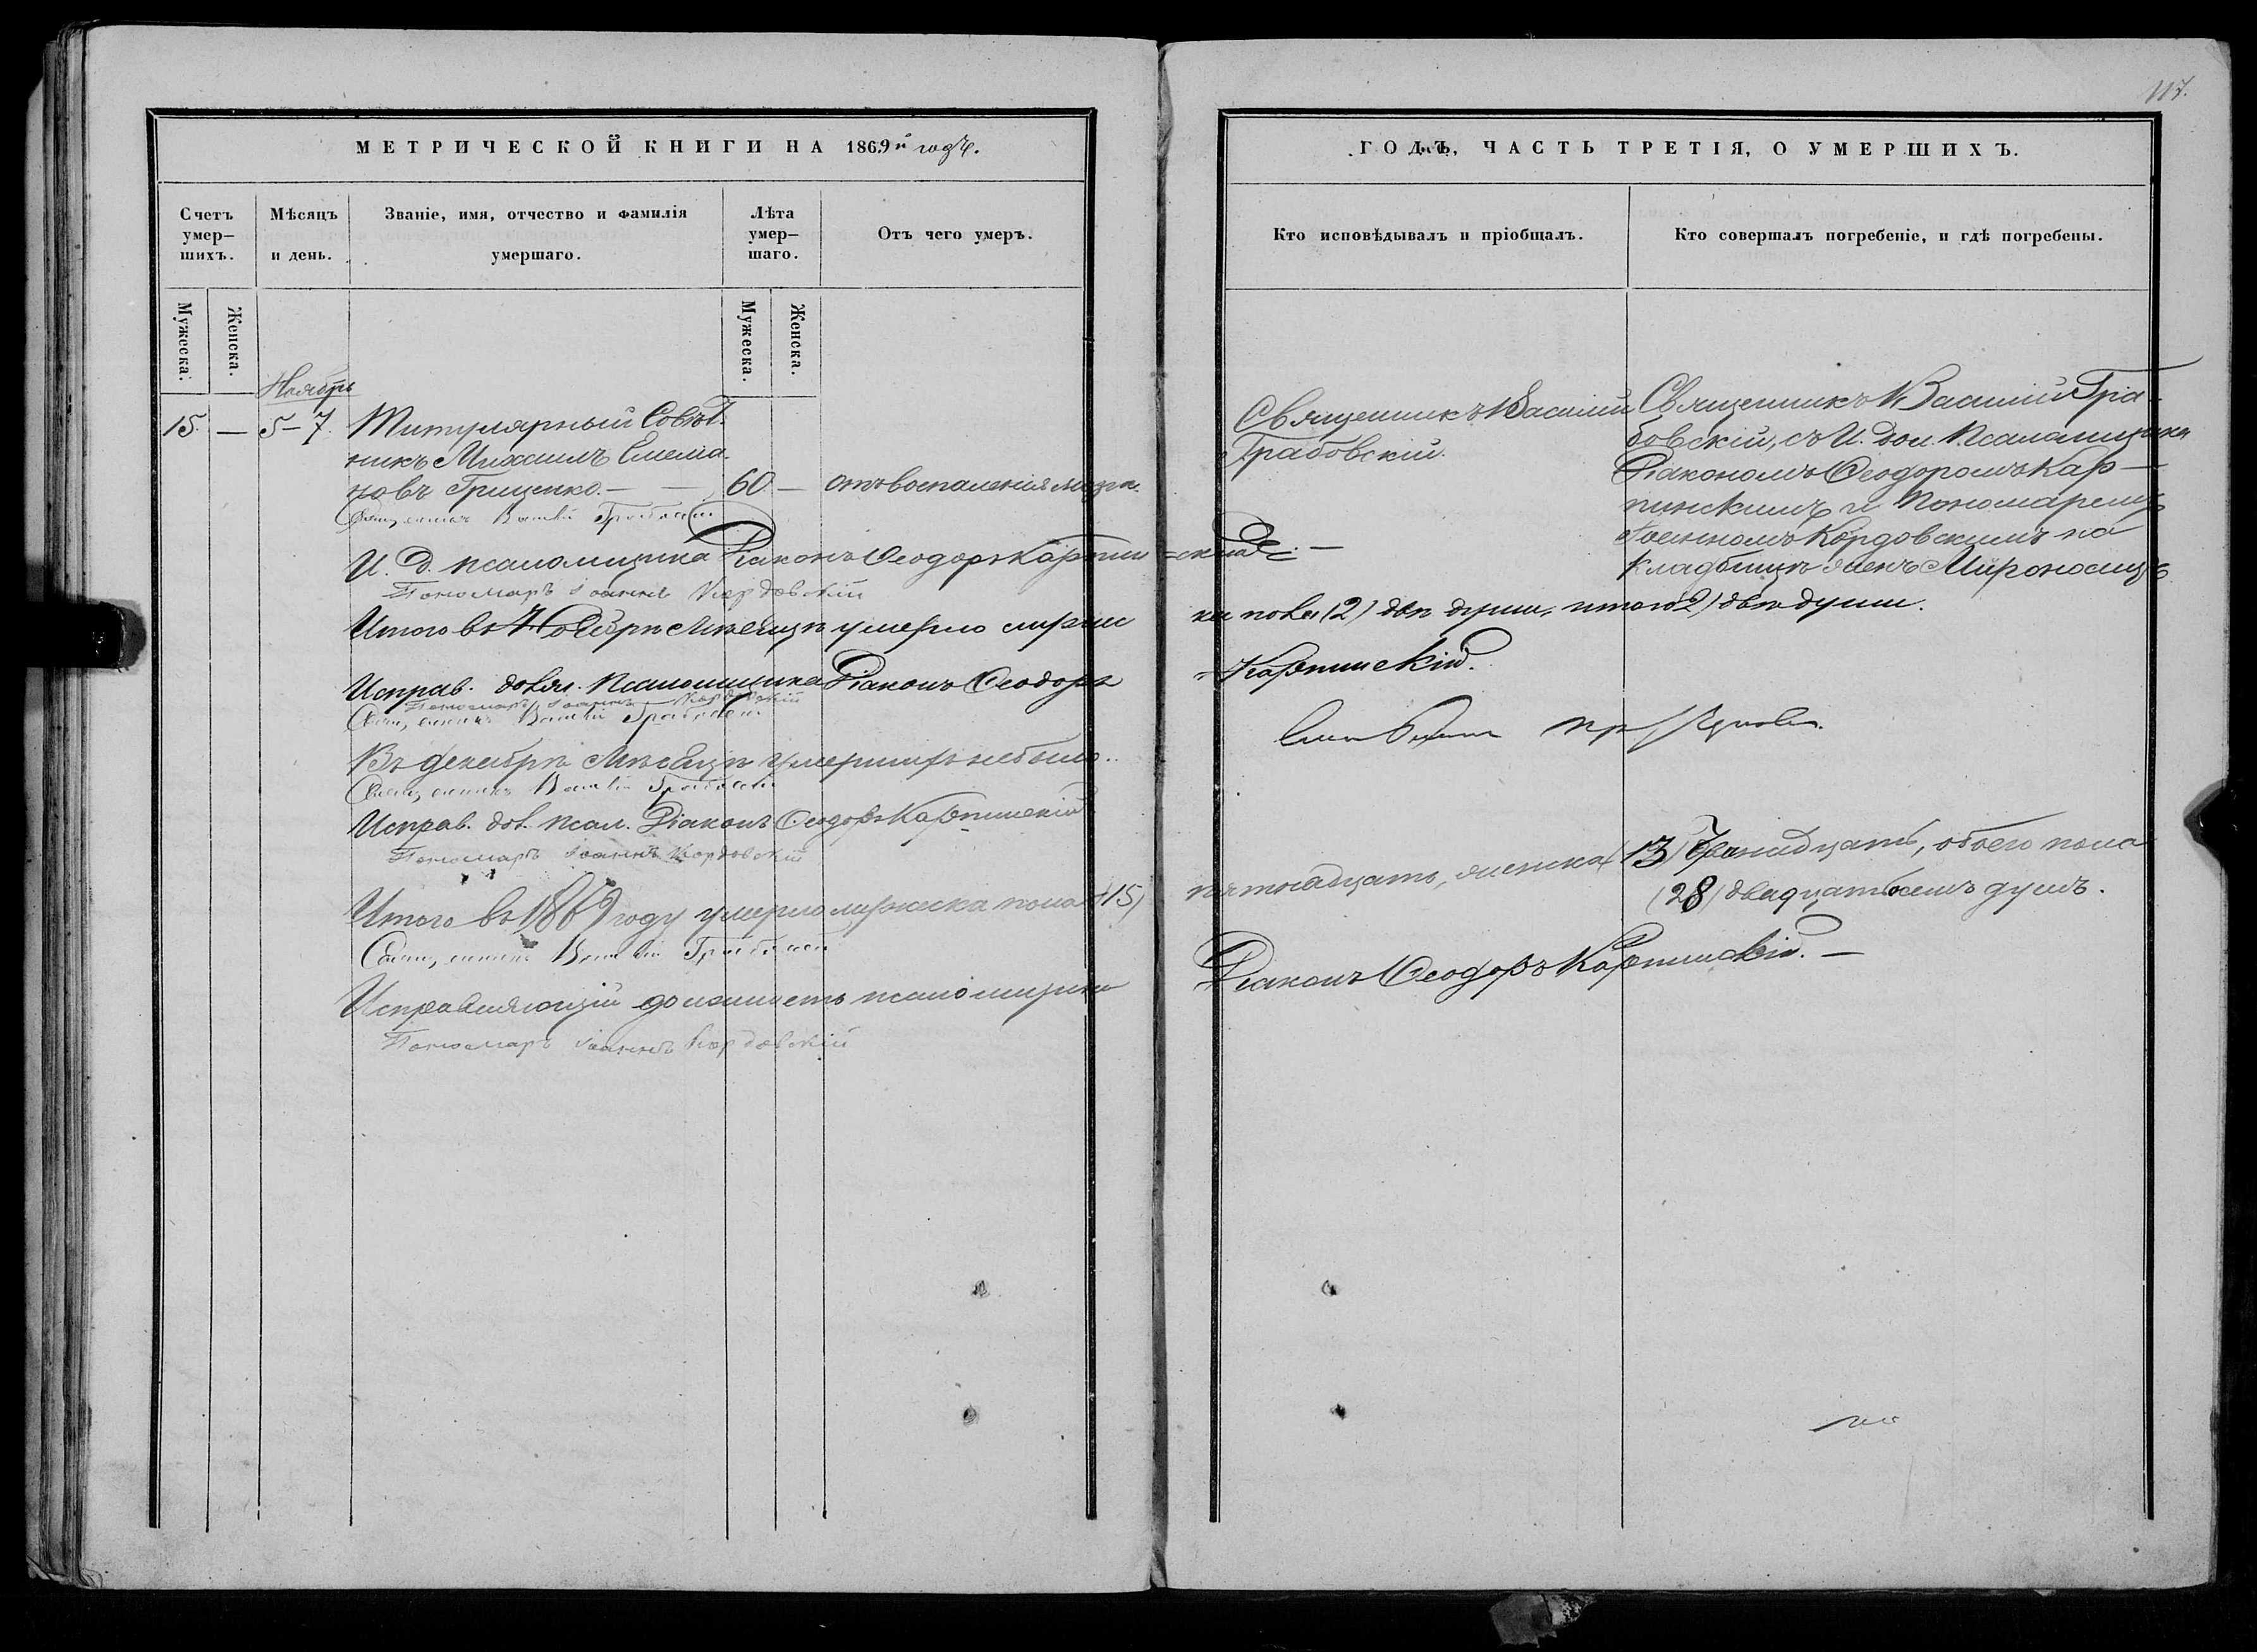 117.
МЕТРИЧЕСКОЙ КНИГИ НА 1869й годъ.
Счетъ умер-шихъ.
Мѣсяцъ и день.
Званіе, имя, отчество и фамилія умершаго.
Лѣта умер-шаго.
Отъ чего умеръ.
Мужеска.
Женска.
Мужеска.
Женска.
Ноябрь
15. — 5-7. Титулярный Совѣт-
никъ Михаилъ Симео-
новъ Гриценко. — — 60 — отъ воспаленія мозга.
Священникъ Василій Грабовскій
И. Д. псаломщика Діаконъ Ѳеодоръ Карпин=
Пономарь Іоаннъ Кордовскій
Итого въ Ноябрѣ Мѣсяцѣ умерло мужес
Исправ. долж. Псаломщика Діаконъ Ѳеодоръ
Пономарь Іоаннъ Кордовскій
Священникъ Василій Грабовскій
Въ декабрѣ Мѣсяцѣ умершихъ небыло..
Священникъ Василій Грабовскій
Исправ. дол. псал. Діаконъ Ѳеодоръ Карпинскій
Пономарь Іоаннъ Кордовскій
Итого въ 1869 году умерло мужеска пола (15)
Священникъ Василій Грабовскій
Исправляющій должность псаломщика
Пономарь Іоаннъ Кордовскій
ГОДЪ, ЧАСТЬ ТРЕТІЯ, О УМЕРШИХЪ.
Кто исповѣдывалъ и пріобщалъ.
Кто совершалъ погребеніе, и гдѣ погребены.
Священникъ Василій
Грабовскій.
Священникъ Василій Гра-
бовскій, съ И. дол. Псаломщика
Діакономъ Ѳеодоромъ Кар-
пинскимъ и Пономаремъ
Іоанномъ Кордовскимъ на
Кладбищѣ женъ Мѵроносицъ
=скій. —
ка пола (2) двѣ души, итого (2) двѣ души.
=Карпинскій.
пятнадцать, женска (13) тринадцать, обоего пола
(28) двадцать восемь душъ.
Діаконъ Ѳеодоръ Карпинскій. —